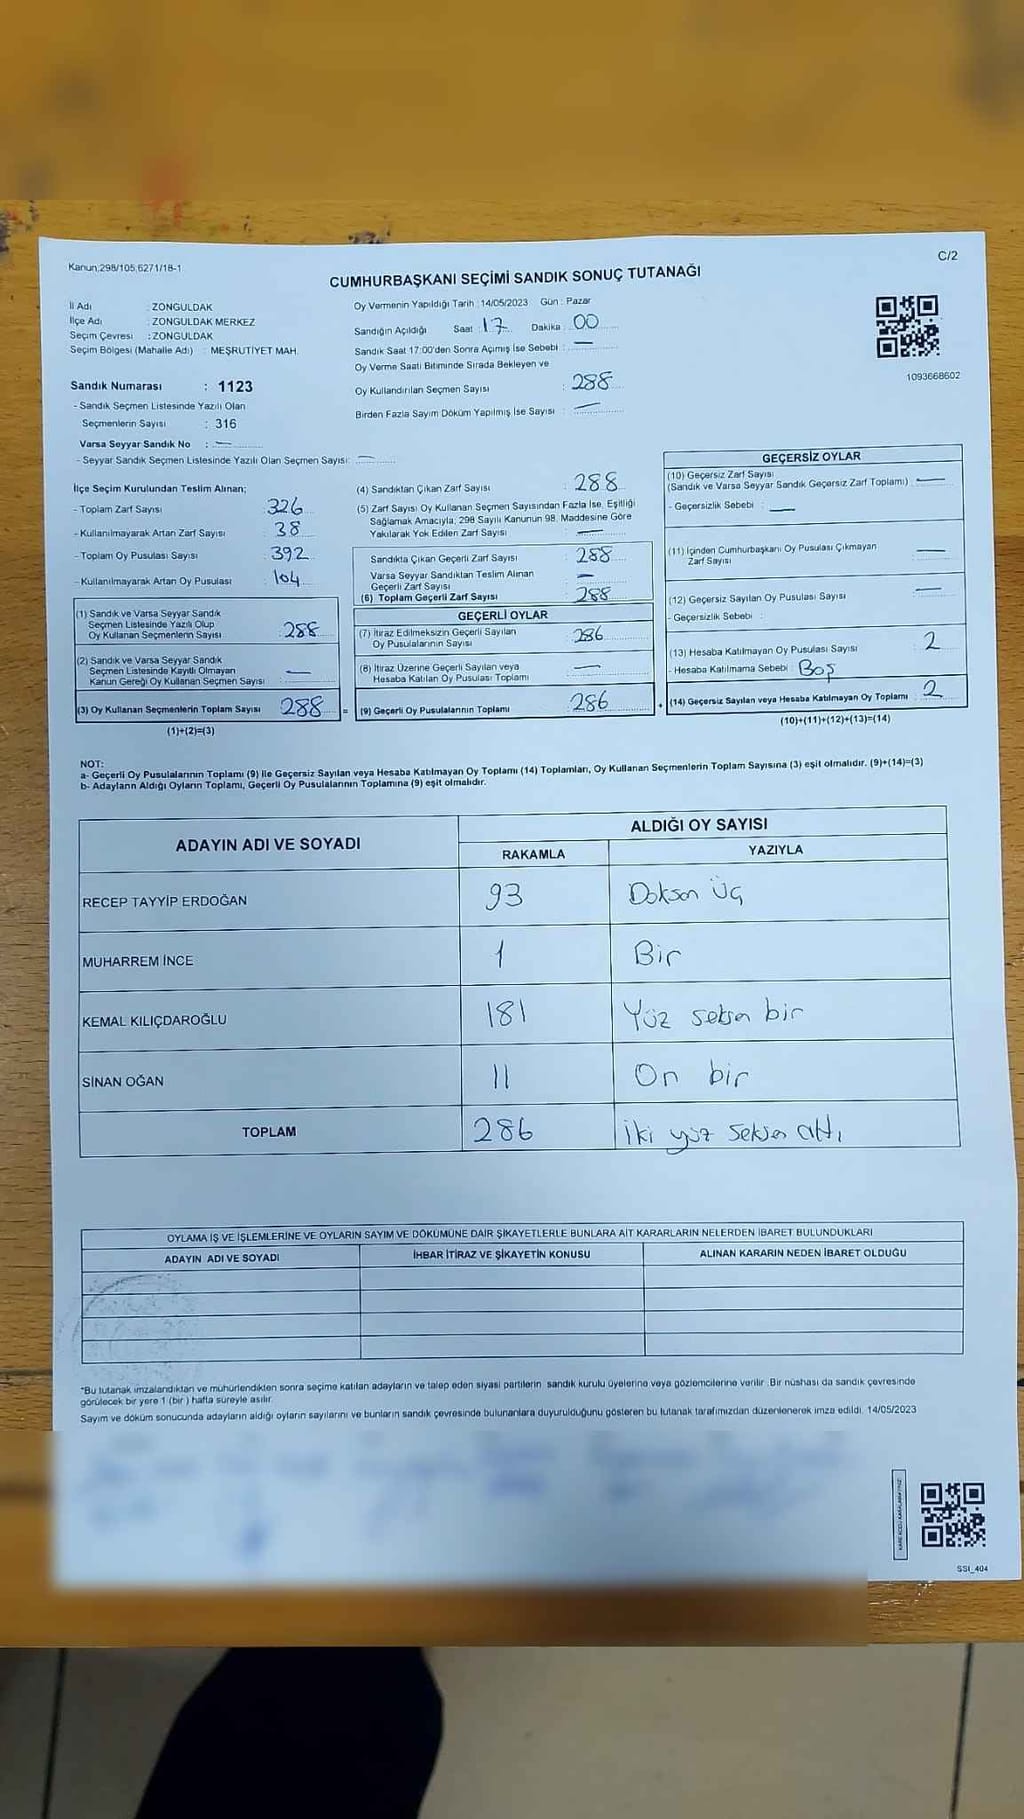 Kanun;298/105,6271/18-1
C/2
CUMHURBAŞKANI SEÇİMİ SANDIK SONUÇ TUTANAĞI
İl Adı : ZONGULDAK
İlçe Adı : ZONGULDAK MERKEZ
Seçim Çevresi : ZONGULDAK
Seçim Bölgesi (Mahalle Adı) : MEŞRUTİYET MAH.
Sandık Numarası : 1123
- Sandık Seçmen Listesinde Yazılı Olan
Seçmenlerin Sayısı : 316
Varsa Seyyar Sandık No : —
- Seyyar Sandık Seçmen Listesinde Yazılı Olan Seçmen Sayısı: —
Oy Vermenin Yapıldığı Tarih : 14/05/2023 Gün : Pazar
Sandığın Açıldığı Saat : 17 Dakika : 00
Sandık Saat 17:00'den Sonra Açımış İse Sebebi : —
Oy Verme Saati Bitiminde Sırada Bekleyen ve
Oy Kullandırılan Seçmen Sayısı : 288
Birden Fazla Sayım Döküm Yapılmış İse Sayısı : —
1093668602
İlçe Seçim Kurulundan Teslim Alınan;
- Toplam Zarf Sayısı : 326
- Kullanılmayarak Artan Zarf Sayısı : 38
- Toplam Oy Pusulası Sayısı : 392
- Kullanılmayarak Artan Oy Pusulası : 104
(1) Sandık ve Varsa Seyyar Sandık
Seçmen Listesinde Yazılı Olup
Oy Kullanan Seçmenlerin Sayısı : 288
(2) Sandık ve Varsa Seyyar Sandık
Seçmen Listesinde Kayıtlı Olmayan
Kanun Gereği Oy Kullanan Seçmen Sayısı : —
(3) Oy Kullanan Seçmenlerin Toplam Sayısı : 288 =
(1)+(2)=(3)
(4) Sandıktan Çıkan Zarf Sayısı : 288
(5) Zarf Sayısı Oy Kullanan Seçmen Sayısından Fazla İse, Eşitliği
Sağlamak Amacıyla; 298 Sayılı Kanunun 98. Maddesine Göre
Yakılarak Yok Edilen Zarf Sayısı : —
Sandıkta Çıkan Geçerli Zarf Sayısı : 288
Varsa Seyyar Sandıktan Teslim Alınan
Geçerli Zarf Sayısı : —
(6) Toplam Geçerli Zarf Sayısı : 288
GEÇERLİ OYLAR
(7) İtiraz Edilmeksizin Geçerli Sayılan
Oy Pusulalarının Sayısı : 286
(8) İtiraz Üzerine Geçerli Sayılan veya
Hesaba Katılan Oy Pusulası Toplamı : —
(9) Geçerli Oy Pusulalarının Toplamı : 286 +
GEÇERSİZ OYLAR
(10) Geçersiz Zarf Sayısı
(Sandık ve Varsa Seyyar Sandık Geçersiz Zarf Toplamı) : —
- Geçersizlik Sebebi : —
(11) İçinden Cumhurbaşkanı Oy Pusulası Çıkmayan
Zarf Sayısı : —
(12) Geçersiz Sayılan Oy Pusulası Sayısı : —
- Geçersizlik Sebebi :
(13) Hesaba Katılmayan Oy Pusulası Sayısı : 2
- Hesaba Katılmama Sebebi : Boş
(14) Geçersiz Sayılan veya Hesaba Katılmayan Oy Toplamı : 2
(10)+(11)+(12)+(13)=(14)
NOT:
a- Geçerli Oy Pusulalarının Toplamı (9) ile Geçersiz Sayılan veya Hesaba Katılmayan Oy Toplamı (14) Toplamları, Oy Kullanan Seçmenlerin Toplam Sayısına (3) eşit olmalıdır. (9)+(14)=(3)
b- Adayların Aldığı Oyların Toplamı, Geçerli Oy Pusulalarının Toplamına (9) eşit olmalıdır.
ADAYIN ADI VE SOYADI ALDIĞI OY SAYISI
RAKAMLA YAZIYLA
RECEP TAYYİP ERDOĞAN 93 Doksan Üç
MUHARREM İNCE 1 Bir
KEMAL KILIÇDAROĞLU 181 Yüz seksen bir
SİNAN OĞAN 11 On bir
TOPLAM 286 İki yüz seksen altı
OYLAMA İŞ VE İŞLEMLERİNE VE OYLARIN SAYIM VE DÖKÜMÜNE DAİR ŞİKAYETLERLE BUNLARA AİT KARARLARIN NELERDEN İBARET BULUNDUKLARI
ADAYIN ADI VE SOYADI İHBAR İTİRAZ VE ŞİKAYETİN KONUSU ALINAN KARARIN NEDEN İBARET OLDUĞU
*Bu tutanak imzalandıktan ve mühürlendikten sonra seçime katılan adayların ve talep eden siyasi partilerin sandık kurulu üyelerine veya gözlemcilerine verilir. Bir nüshası da sandık çevresinde
görülecek bir yere 1 (bir) hafta süreyle asılır.
Sayım ve döküm sonucunda adayların aldığı oyların sayılarını ve bunların sandık çevresinde bulunanlara duyurulduğunu gösteren bu tutanak tarafımızdan düzenlenerek imza edildi. 14/05/2023
SSI_404